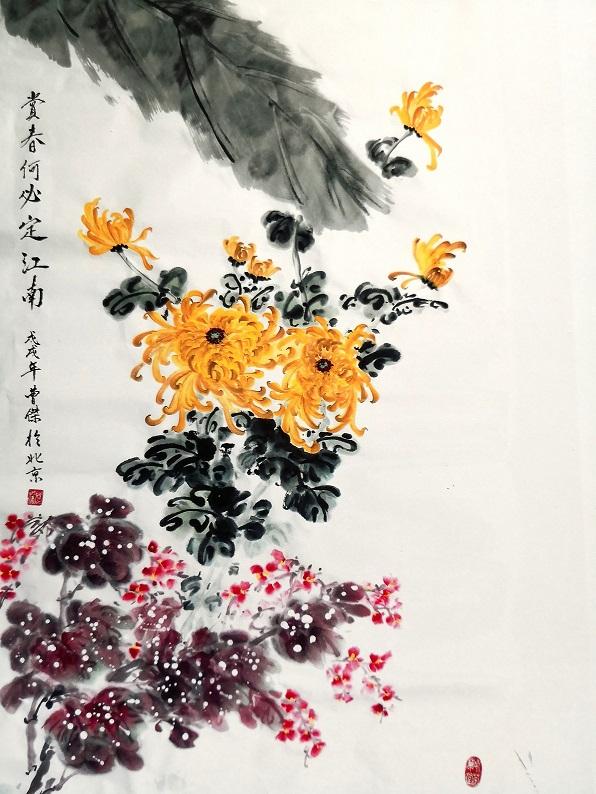 赏春何必定江南
戊戌年曹傑於北京